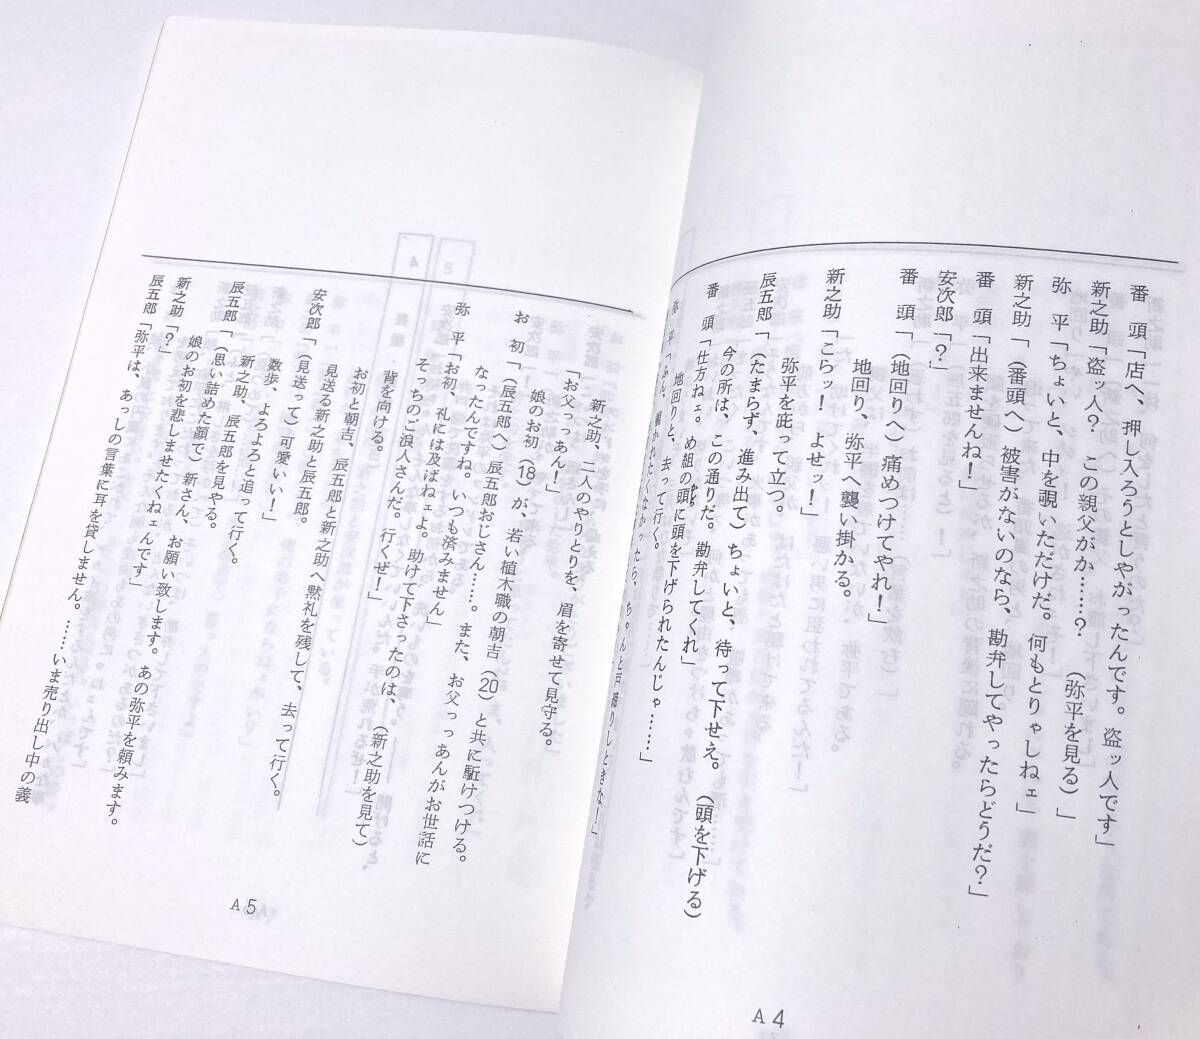 番　頭「店へ、押し入ろうとしやがったんです。盗ッ人です」
新之助「盗ッ人？　この親父がか……？　（弥平を見る）」
弥　平「ちょいと、中を覗いただけだ。何もとりゃしねェ」
新之助「（番頭へ）被害がないのなら、勘弁してやったらどうだ？」
番　頭「出来ませんね！」
安次郎「？」
番　頭「（地回りへ）痛めつけてやれ！」
地回り、弥平へ襲い掛かる。
新之助「こらッ！　よせッ！」
弥平を庇って立つ。
辰五郎「（たまらず、進み出て）ちょいと、待って下せえ。（頭を下げる）
今の所は、この通りだ。勘弁してくれ」
番　頭「仕方ねェ。め組の頭に頭を下げられたんじゃ……」
地回りと、去って行く。
弥　平「ふん、
ちゃんと戸締りしときな！」
A4
新之助、二人のやりとりを、眉を寄せて見守る。
「お父っつあん！」
娘のお初（18）が、若い植木職の朝吉（20）と共に駈けつける。
お　初「（辰五郎へ）辰五郎おじさん……。また、お父っつあんがお世話に
なったんですね。いつも済みません」
弥　平「お初、礼には及ばねェよ。助けて下さったのは、（新之助を見て）
そっちのご浪人さんだ。行くぜ！」
背を向ける。
お初と朝吉、辰五郎と新之助へ黙礼を残して、去って行く。
見送る新之助と辰五郎。
安次郎「（見送って）可愛いい！」
散歩、よろよろと追って行く。
新之助、辰五郎を見やる。
辰五郎「（思い詰めた顔で）新さん、お願い致します。あの弥平を頼みます。
娘のお初を悲しませたくねェんです」
新之助「？」
辰五郎「弥平は、あっしの言葉に耳を貸しません。……いま売り出し中の義
A5